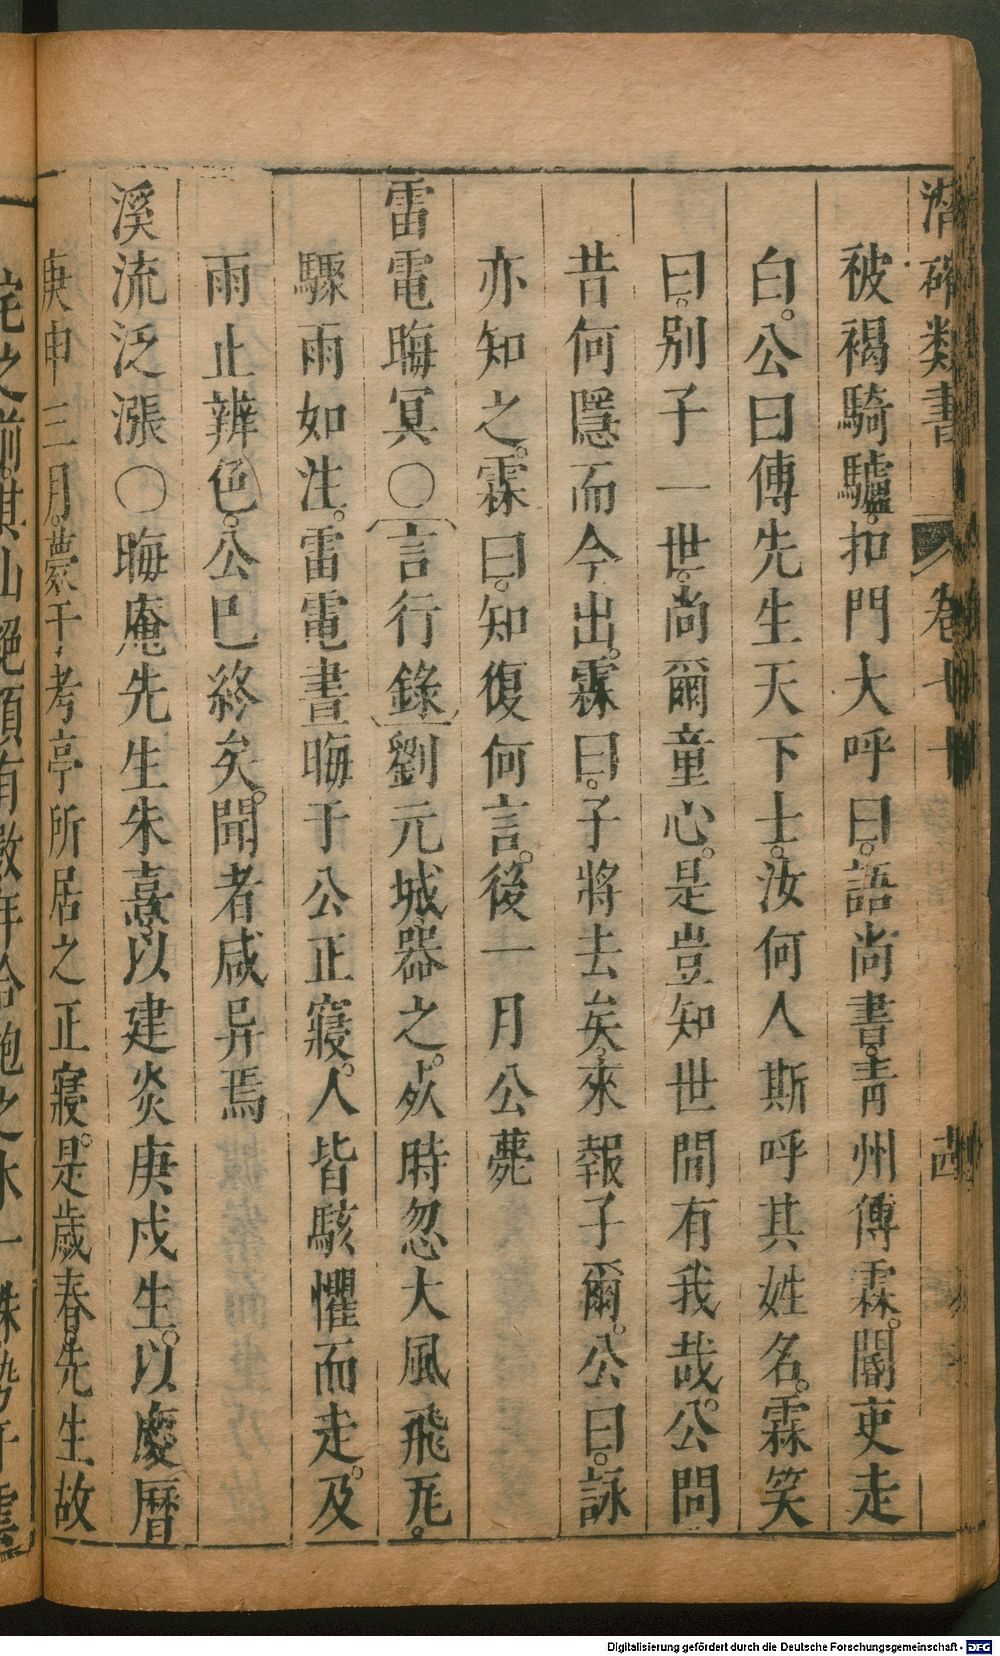 潛確類書 卷七十 古
被褐騎驢。扣門大呼曰。語尚書。青州傅霖。閽吏走
白。公曰傅先生天下士。汝何人斯呼其姓名。霖笑
曰。別子一世。尚爾童心。是豈知世間有我哉。公問
昔何隱而今出。霖曰。子將去矣。來報子爾。公曰。詠
亦知之。霖曰。知復何言。後一月公薨
雷電晦冥〇言行錄劉元城器之。歿時忽大風飛瓦。
驟雨如注。雷電晝晦于公正寢。人皆駭懼而走。及
雨止辨色。公巳終矣。聞者咸异焉
溪流泛漲〇晦庵先生朱熹以建炎庚戍生。以慶曆
庚申三月。薨于考亭所居之正寢。是歲春。先生故
之前。其山絕頂有數
Digitalisierung gefördert durch die Deutsche Forschungsgemeinschaft - DFG